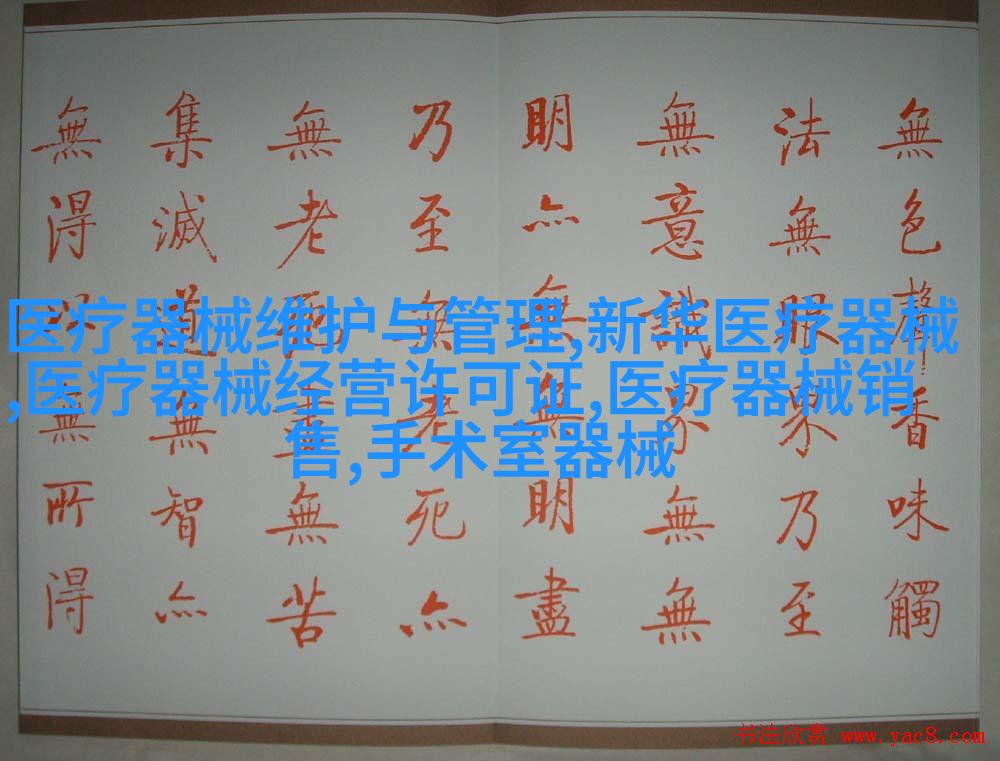 無色聲香味觸
法無眼界乃至
無意識界無無
明亦無無明盡
乃至無老死亦
無老死盡無苦
集滅道無智亦
無得以無所得
医疗器械维护与管理,新华医疗器械
,医疗器械经营许可证,医疗器械销
售,手术室器械
书法欣赏 www.yac8.com